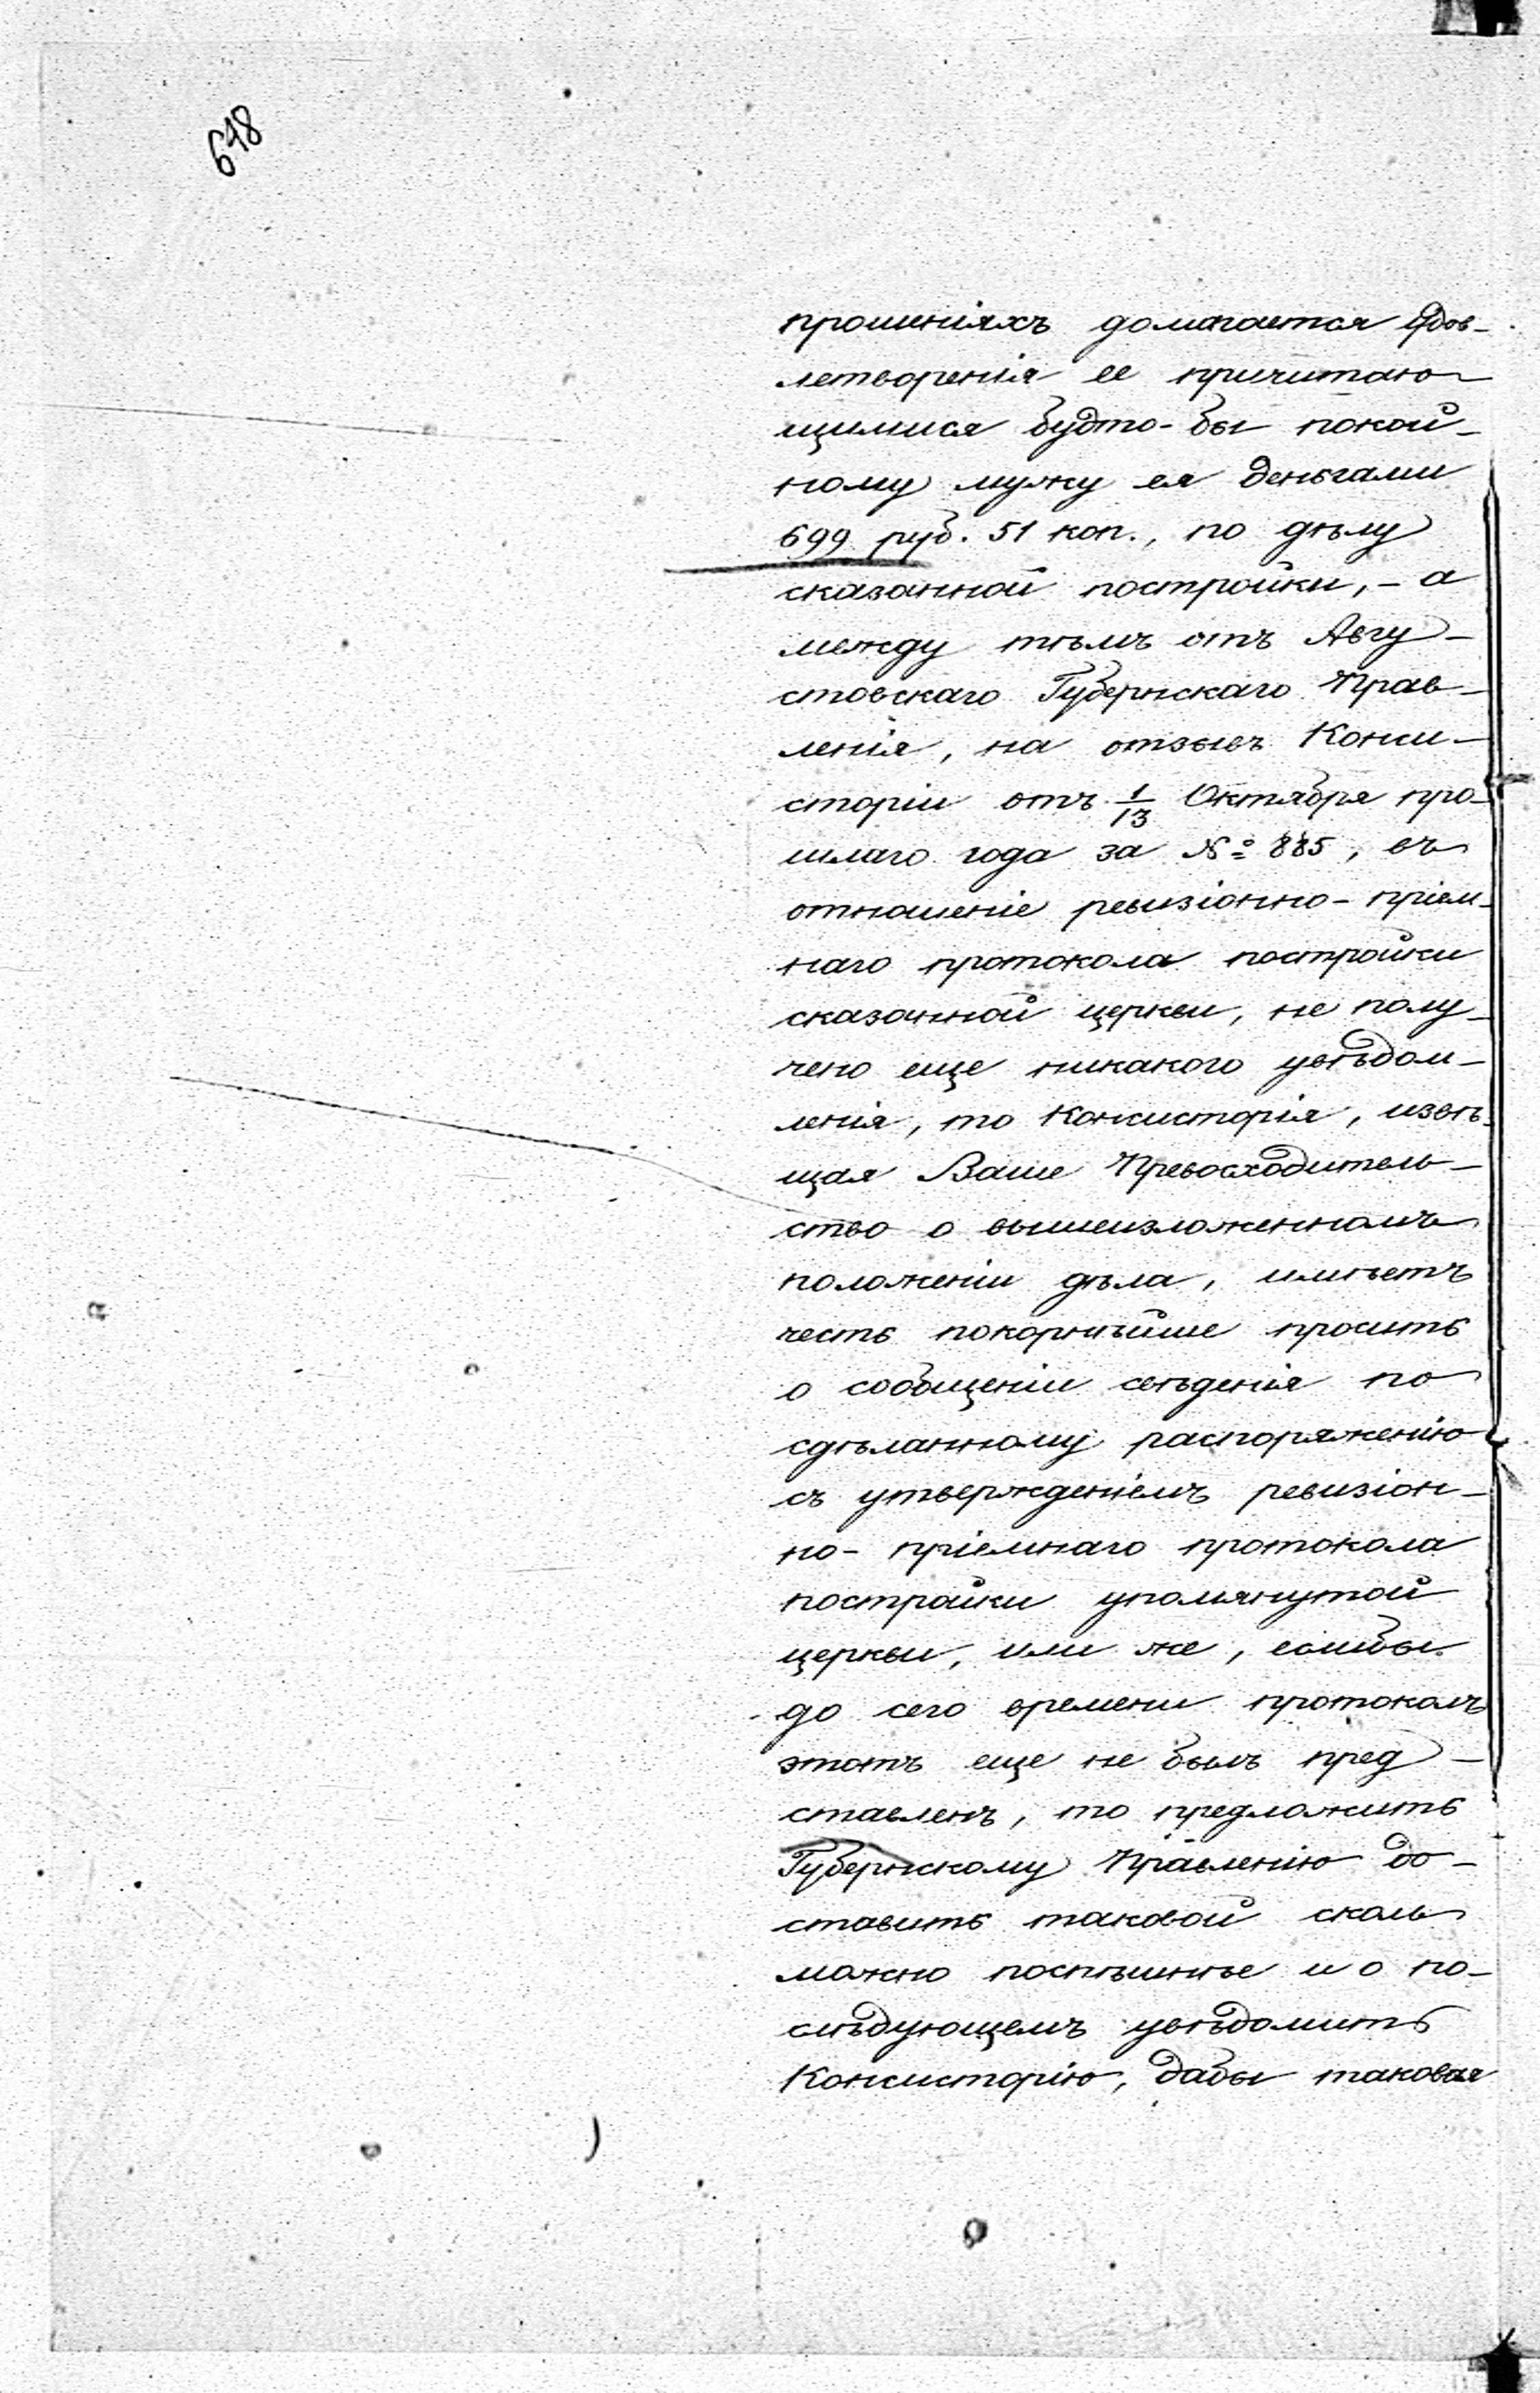 648
прошеніяхъ домагается Удов-
летворенія ее причитаю-
щимися будто-бы покой-
ному мужу ея деньгами
699 руб. 51 коп., по дѣлу
сказанной постройки, - а
между тѣмъ отъ Авгу-
стовскаго Губернскаго Прав-
ленія, на отзывъ Конси-
сторіи отъ 1/13 Октября про-
шлаго года за № 885, въ
отношеніе ревизіонно-пріем-
наго протокола постройки
сказанной церкви, не полу-
чено еще никакого увѣдом-
ленія, то Консисторія, извѣ-
щая Ваше Превосходитель-
ство о вышеизложенномъ
положеніи дѣла, имѣетъ
честь покорнѣйше просить
о сообщеніи свѣденія по
сдѣланному распоряженію
съ утвержденіемъ ревизіон-
но-пріемнаго протокола
постройки упомянутой
церкви, или же, еслибы
до сего времени протоколъ
этотъ еще не былъ пред-
ставленъ, то предложить
Губернскому Правленію до-
ставить таковой сколь
можно поспѣшнѣе и о по-
слѣдующемъ увѣдомить
Консисторію, дабы таковая